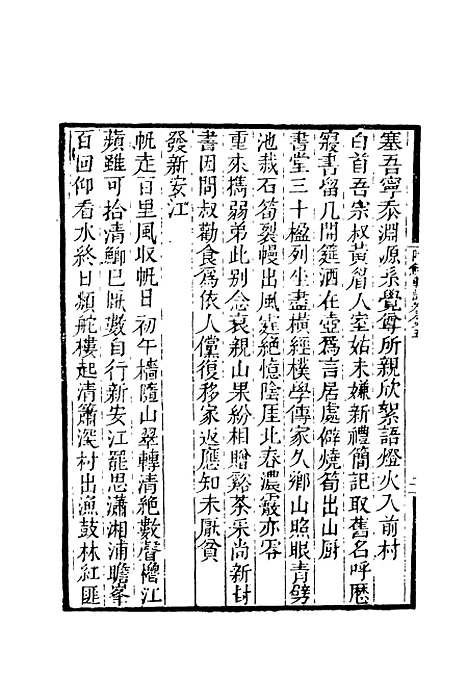 塞吾寧忝淵源系覺每所親欣絮語燈火入前村
白首吾宗叔黃眉人室姑未嫌新禮簡記取舊名呼歷
寢書留几開筵酒在壺為言居處僻燒筍出山厨
書堂三十楹列坐盡橫經樸學傳家久鄉山照眼青劈
池栽石筍裂幔出風庭絕憶陰厓北春濃霰亦零
重來攜弱弟此別念衰親山果紛相贈谿茶采尚新封
書因問叔勸食為依人儻復移家返應知未厭貧
發新安江
帆走百里風収帆日初午檣隨山翠轉清絕數聲櫓江
蘋雖可拾清鯽已厭數自行新安江罷思瀟湘浦瞻峯
百回仰看水終日頫舵樓起清簫深村出漁鼓林紅匪